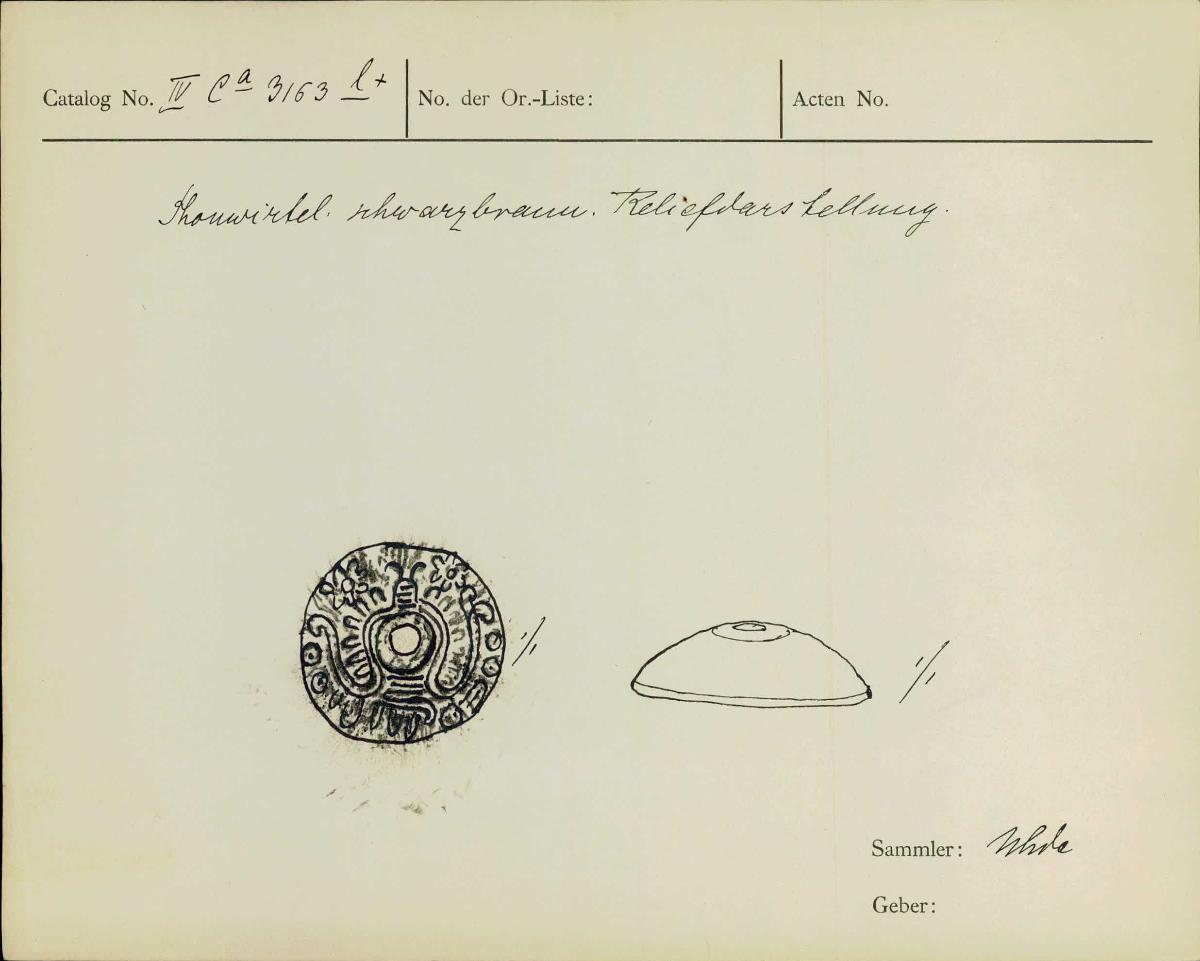 Catalog No. IV Ca 3163 l+ No. der Or.-Liste: Acten No.
Thonwirtel. schwarzbraun. Reliefdarstellung.
1/1 1/1
Sammler: Uhde
Geber: